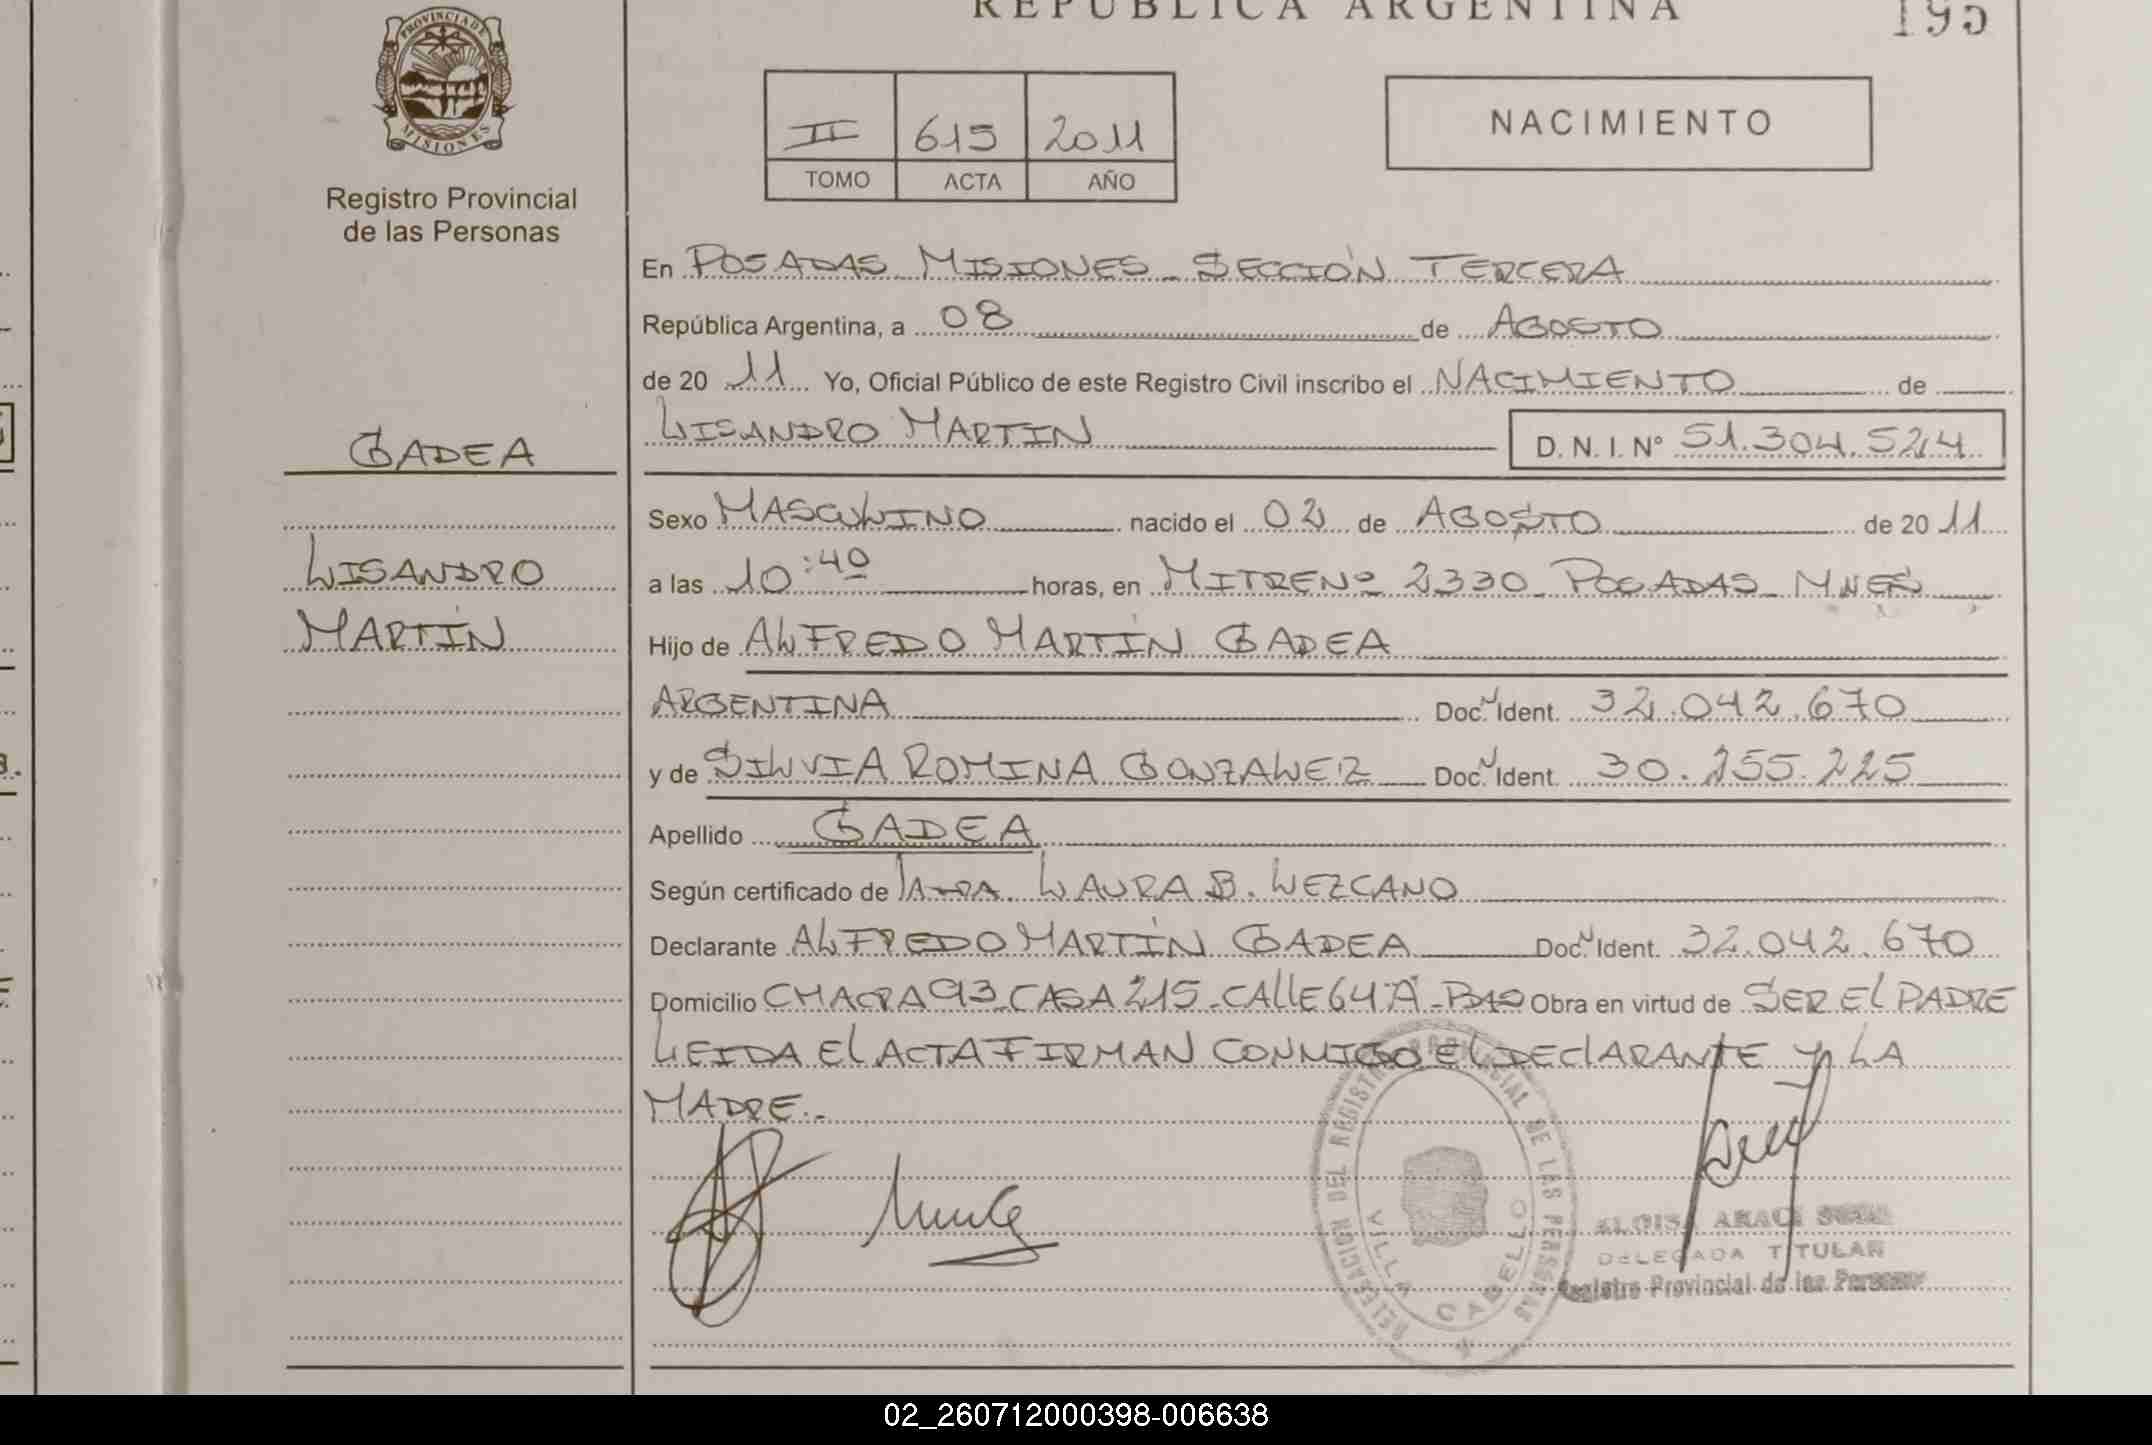 REPUBLICA ARGENTINA
195
PROVINCIA DE
MISIONES
Registro Provincial
de las Personas
II 615 2011
TOMO ACTA AÑO
NACIMIENTO
En POSADAS MISIONES - SECCIÓN TERCERA
República Argentina, a 08 de AGOSTO
de 20 11 Yo, Oficial Público de este Registro Civil inscribo el NACIMIENTO de
LISANDRO MARTIN D. N. I. Nº 51.304.524
GADEA
LISANDRO
MARTÍN
Sexo MASCULINO nacido el 02 de AGOSTO de 20 11
a las 10:40 horas, en MITRE Nº 2330 - POSADAS - MNES
Hijo de ALFREDO MARTÍN GADEA
ARGENTINA Doc. Ident. 32.042.670
y de SILVIA ROMINA GONZALEZ Doc. Ident. 30.255.225
Apellido GADEA
Según certificado de LAURA B. LEZCANO
Declarante ALFREDO MARTÍN GADEA Doc. Ident. 32.042.670
Domicilio CHACRA 93 - CASA 215 - CALLE 64 "A" - Obra en virtud de SER El PADRE
LEIDA El ACTA FIRMAN CONMIGO El DEClARANTE y LA
MADRE.-
DELEGACION DEL REGISTRO PROVINCIAL DE LAS PERSONAS
VILLA CABELLO
ARACI
DELEGADA TITULAR
Registro Provincial de las Personas
02_260712000398-006638